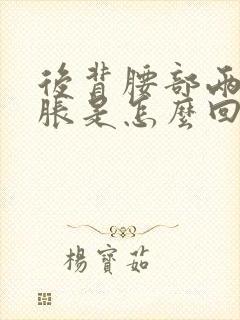 後背腰部兩
脹是怎麼回
楊寶茹